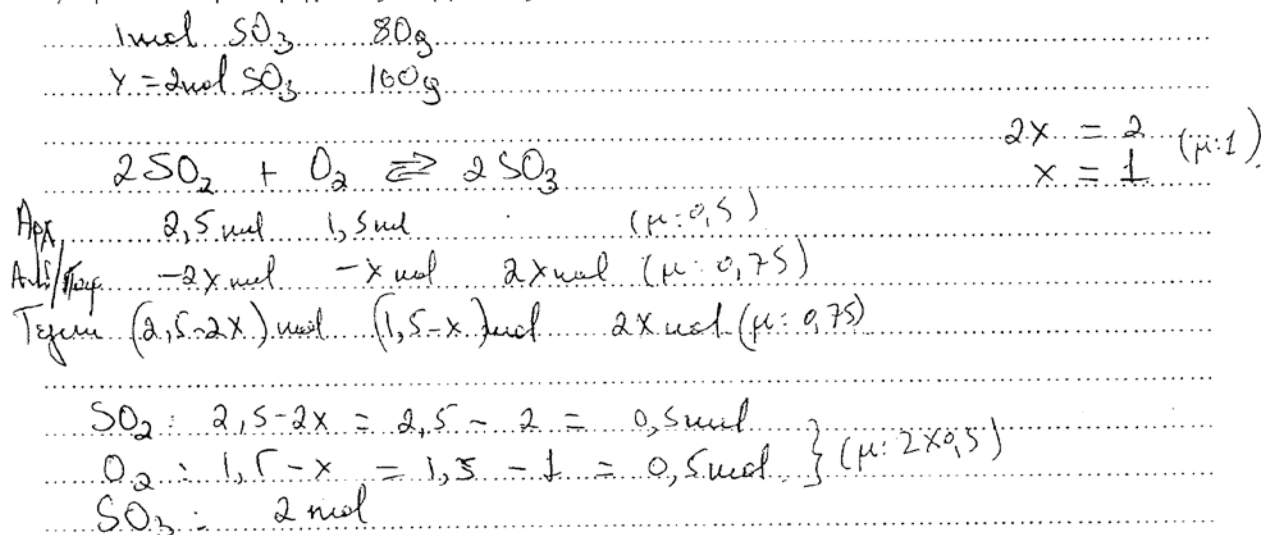 1mol SO₃ 80g
Y = 2mol SO₃ 160g
2x = 2
x = 1 (μ:1)
2SO₂ + O₂ ⇌ 2SO₃
Αρχ 2,5 mol 1,5 mol (μ: 0,5)
Αντ/Παρ. -2x mol -x mol 2x mol (μ: 0,75)
Τελικά (2,5-2x) mol (1,5-x) mol 2x mol (μ: 0,75)
SO₂: 2,5-2x = 2,5 - 2 = 0,5 mol
O₂: 1,5-x = 1,5 - 1 = 0,5 mol } (μ: 2x0,5)
SO₃: 2 mol